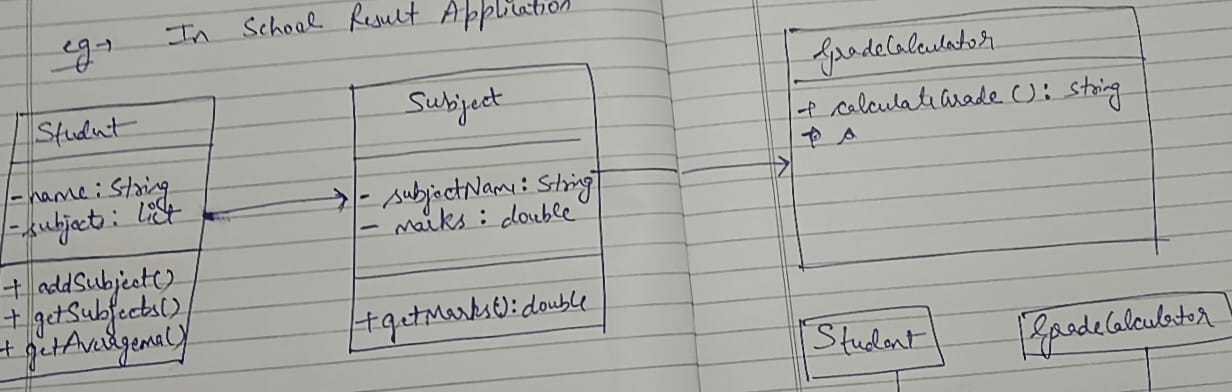 eg→ In School Result Application
Student
- name : String
- subject : list
+ addSubject()
+ getSubjects()
+ getAveragema()
Subject
- subjectName : String
- marks : double
+ getMarks() : double
GradeCalculator
+ calculateGrade () : String
Student
GradeCalculator